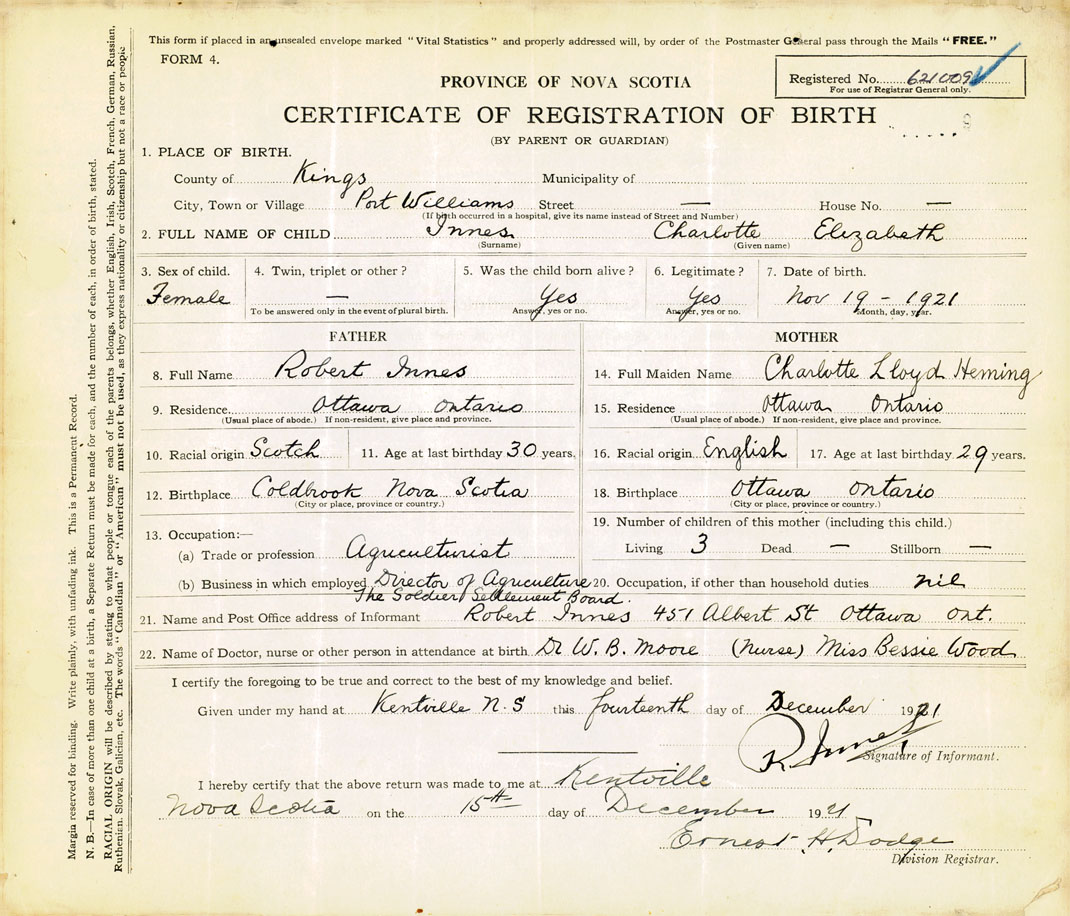 This form if placed in an unsealed envelope marked "Vital Statistics" and properly addressed will, by order of the Postmaster General pass through the Mails "FREE."
FORM 4.
Registered No. 621009
For use of Registrar General only.
PROVINCE OF NOVA SCOTIA
CERTIFICATE OF REGISTRATION OF BIRTH
(BY PARENT OR GUARDIAN)
1. PLACE OF BIRTH.
County of Kings Municipality of
City, Town or Village Port Williams Street — House No. —
(If birth occurred in a hospital, give its name instead of Street and Number)
2. FULL NAME OF CHILD Innes Charlotte Elizabeth
(Surname) (Given name)
3. Sex of child. 4. Twin, triplet or other? 5. Was the child born alive? 6. Legitimate? 7. Date of birth.
Female — Yes Yes Nov 19 - 1921
To be answered only in the event of plural birth. Answer, yes or no. Answer, yes or no. Month, day, year.
FATHER MOTHER
8. Full Name Robert Innes 14. Full Maiden Name Charlotte Lloyd Heming
9. Residence Ottawa Ontario 15. Residence Ottawa Ontario
(Usual place of abode.) If non-resident, give place and province. (Usual place of abode.) If non-resident, give place and province.
10. Racial origin Scotch 11. Age at last birthday 30 years. 16. Racial origin English 17. Age at last birthday 29 years.
12. Birthplace Coldbrook Nova Scotia 18. Birthplace Ottawa Ontario
(City or place, province or country.) (City or place, province or country.)
13. Occupation:— 19. Number of children of this mother (including this child.)
(a) Trade or profession Agriculturist Living 3 Dead — Stillborn —
(b) Business in which employed Director of Agriculture 20. Occupation, if other than household duties nil
The Soldier Settlement Board.
21. Name and Post Office address of Informant Robert Innes 451 Albert St Ottawa Ont.
22. Name of Doctor, nurse or other person in attendance at birth Dr W. B. Moore (Nurse) Miss Bessie Wood
I certify the foregoing to be true and correct to the best of my knowledge and belief.
Given under my hand at Kentville N.S this fourteenth day of December 1921
R Innes
Signature of Informant.
I hereby certify that the above return was made to me at Kentville
Nova Scotia on the 15th day of December 1921
Ernest H Dodge
Division Registrar.
Margin reserved for binding. Write plainly, with unfading ink. This is a Permanent Record.
N. B.—In case of more than one child at a birth, a Separate Return must be made for each, and the number of each, in order of birth, stated.
RACIAL ORIGIN will be described by stating to what people or tongue each of the parents belongs, whether English, Irish, Scotch, French, German, Russian,
Ruthenian, Slovak, Galician, etc. The words "Canadian" or "American" must not be used, as they express nationality or citizenship but not a race or people